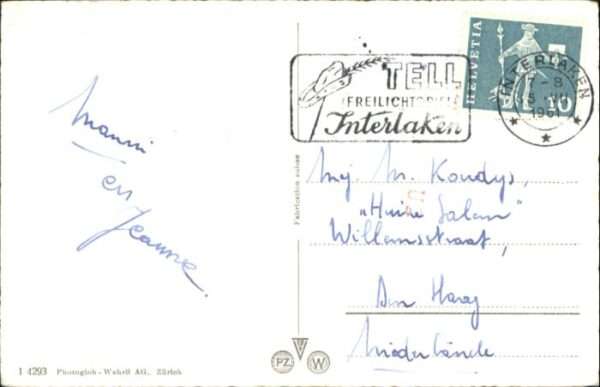 HELVETIA
10
TELL
FREILICHTSPIELE
Interlaken
INTERLAKEN
-8
1961
Manni
en
Jeanne.
Fabrication suisse
Mej. M. Kondys,
„Huize Salam"
Willemsstraat,
Den Haag
Niederlände
PZ
W
1 4293 Photoglob-Wehrli AG., Zürich